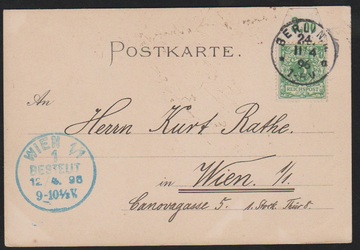 POSTKARTE.
BERLIN
24
11 4
96
REICHSPOST
An
Herrn Kurt Rathe.
in Wien. I/1.
Canovagasse 5. 1. Stock. Thür 8.
WIEN 1/1
1
BESTELLT
12. 4. 96
9-10½V